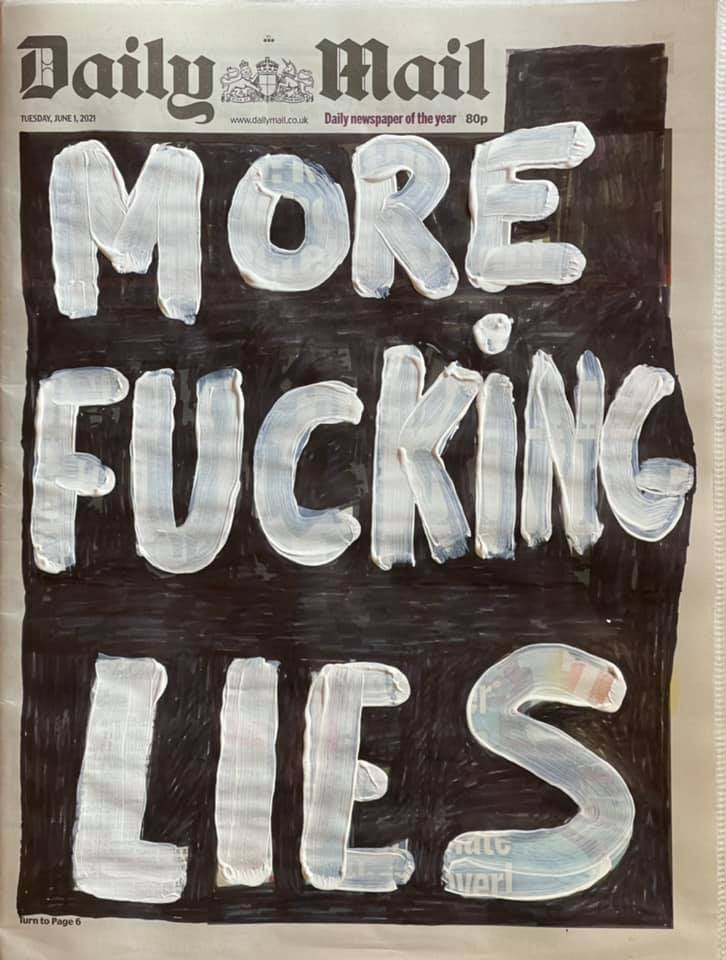 Daily Mail
TUESDAY, JUNE 1, 2021 www.dailymail.co.uk Daily newspaper of the year 80p
MORE
FUCKiNG
LIES
Turn to Page 6